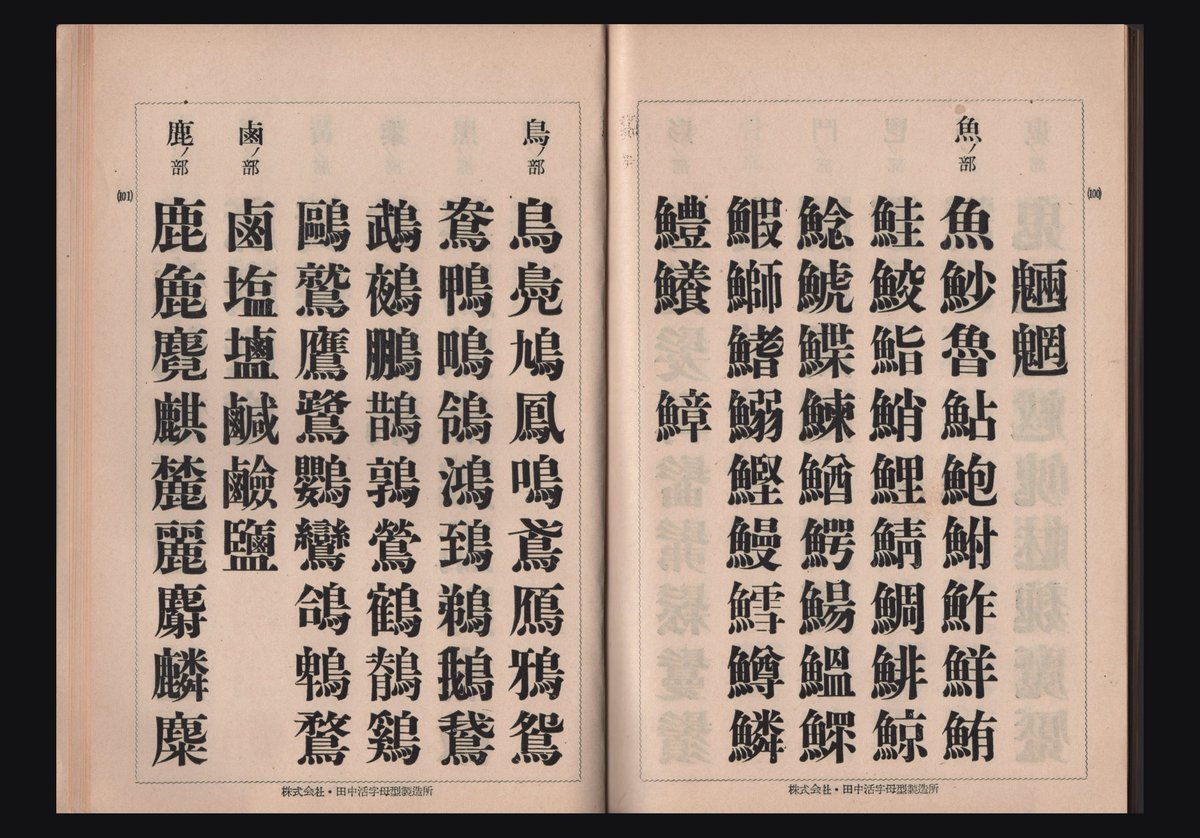 (100)
魎魍
魚ノ部
魚魦魯鮎鮑鮒鮓鮮鮪
鮭鮫鮨鮹鯉鯖鯛鯡鯨
鯰鯱鰈鰊鰌鰐鰑鰛鰥
鰕鰤鰭鰯鰹鰻鱈鱒鱗
鱧鱶鱆
株式会社・田中活字母型製造所
鳥ノ部
鳥鳧鳩鳳鳴鳶鴈鴉鴛
鴦鴨鴫鴒鴻鵄鵜鵝鵞
鵡鵺鵬鵲鶉鶯鶴鶺鶏
鷗鷲鷹鷺鸚鸞鴿鵯鶩
鹵ノ部
鹵塩鹹鹼鹽
鹿ノ部
鹿麁麑麒麓麗麝麟麋
(101)
株式会社・田中活字母型製造所